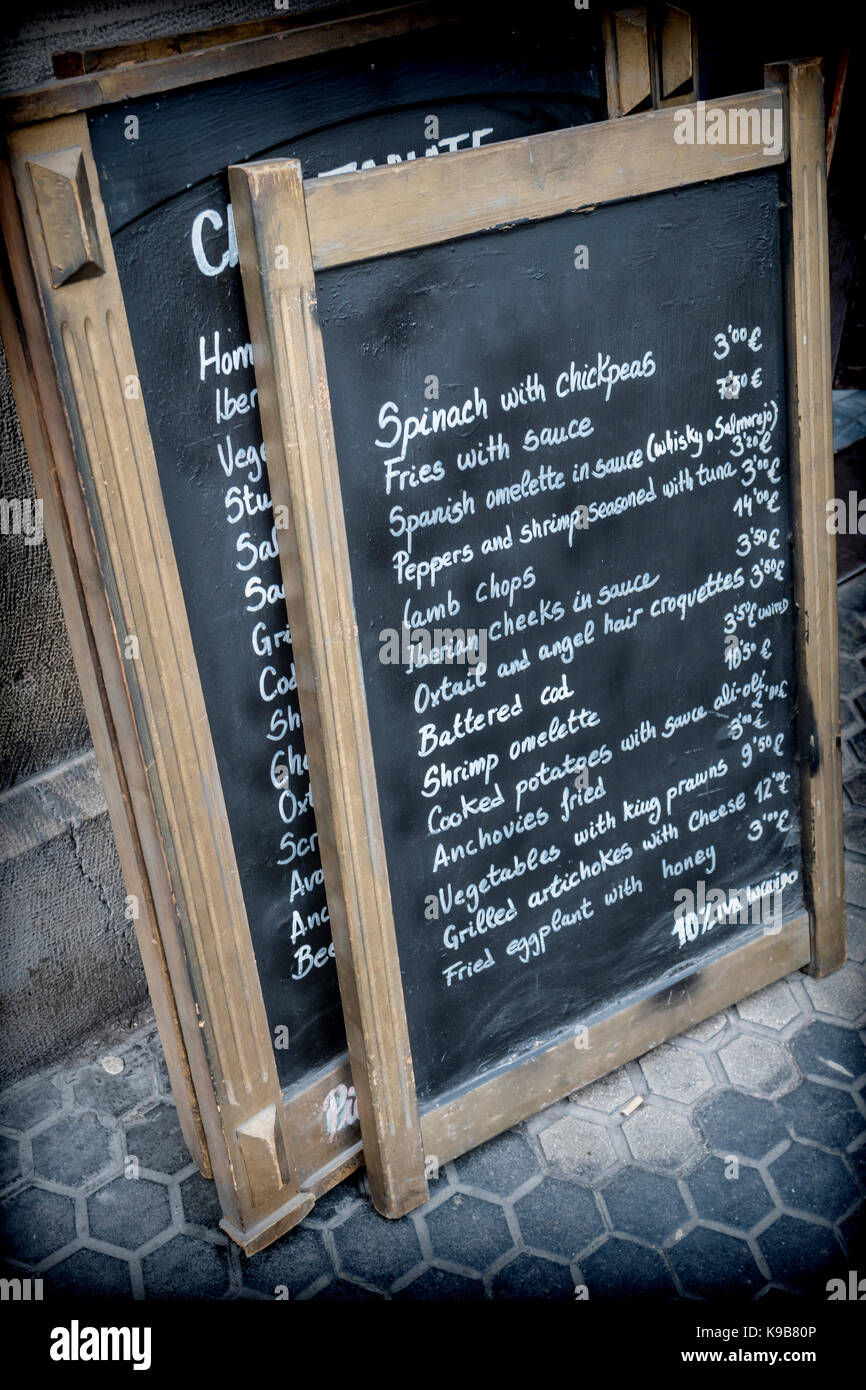 Hom
Iber
Vege
Stu
Sal
Gri
Cod
Oxt
Scr
Avo
Anc
Bee
Spinach with chickpeas 3'00 €
Fries with sauce €
Spanish omelette in sauce (whisky o Salmorejo) 3'20€
Peppers and shrimp seasoned with tuna 3'00€
Lamb chops 14'00€
Iberian cheeks in sauce 3'50€
Oxtail and angel hair croquettes 3'50€
Battered cod 3'50€ UNITED
Shrimp omelette 10'50€
Cooked potatoes with sauce ali-oli 2'00€
Anchovies fried 3'00€
Vegetables with king prawns 9'50€
Grilled artichokes with cheese 12'00€
Fried eggplant with honey 3'00€
10% IVA incluido
alamy
Image ID: K9B80P
www.alamy.com